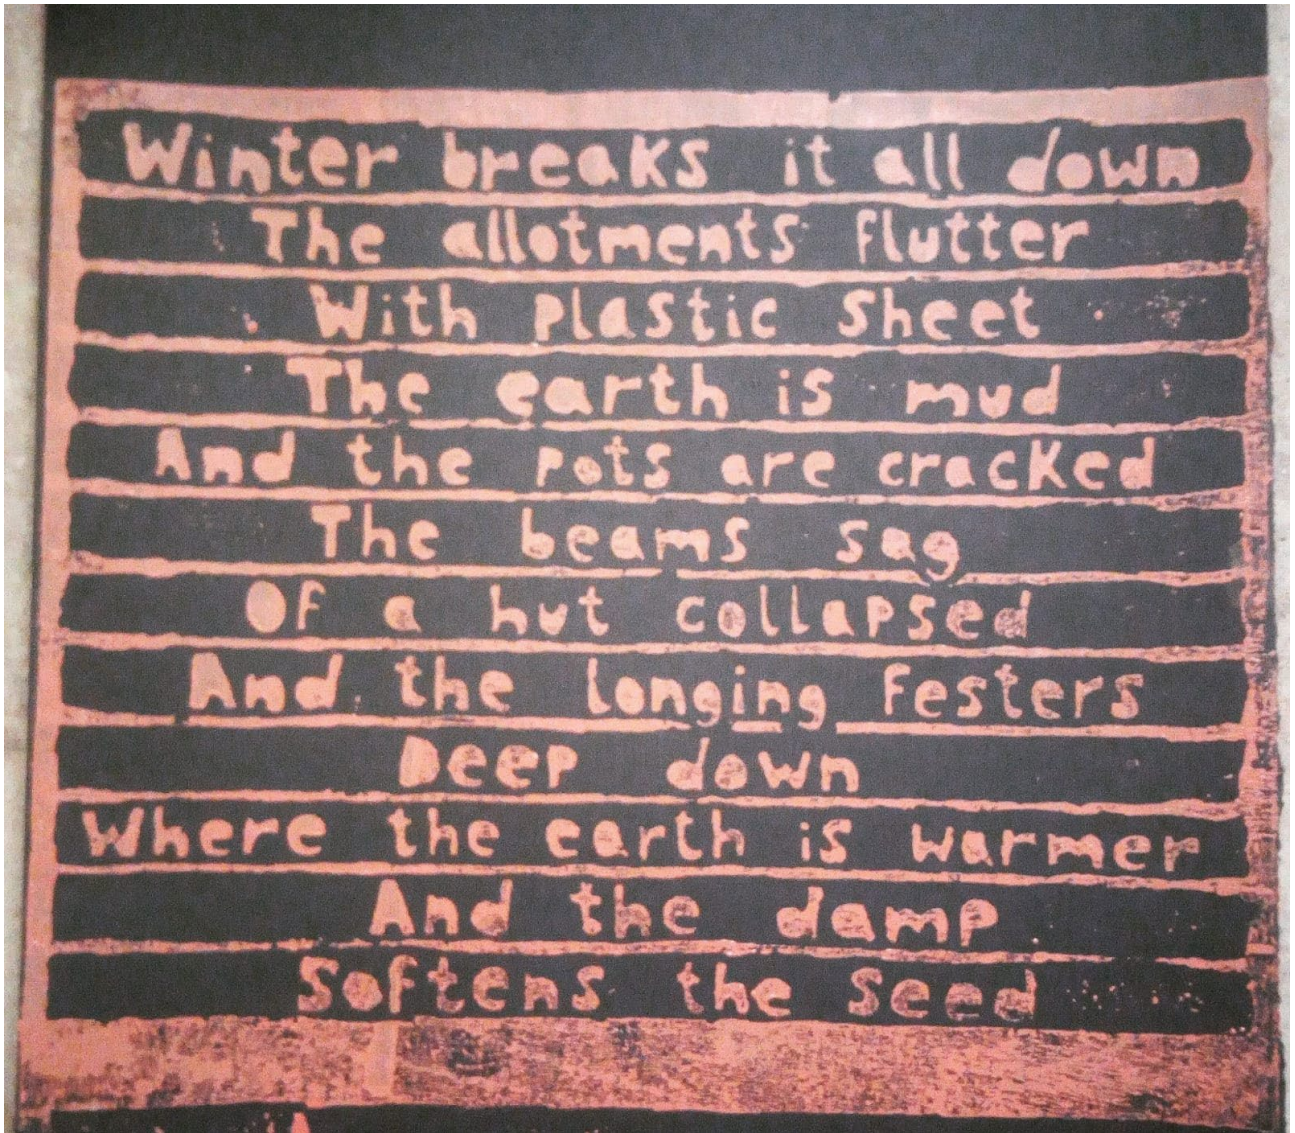 Winter breaks it all down
The allotments flutter
With plastic sheet
The earth is mud
And the pots are cracked
The beams sag
Of a hut collapsed
And the longing festers
Deep down
Where the earth is warmer
And the damp
Softens the seed